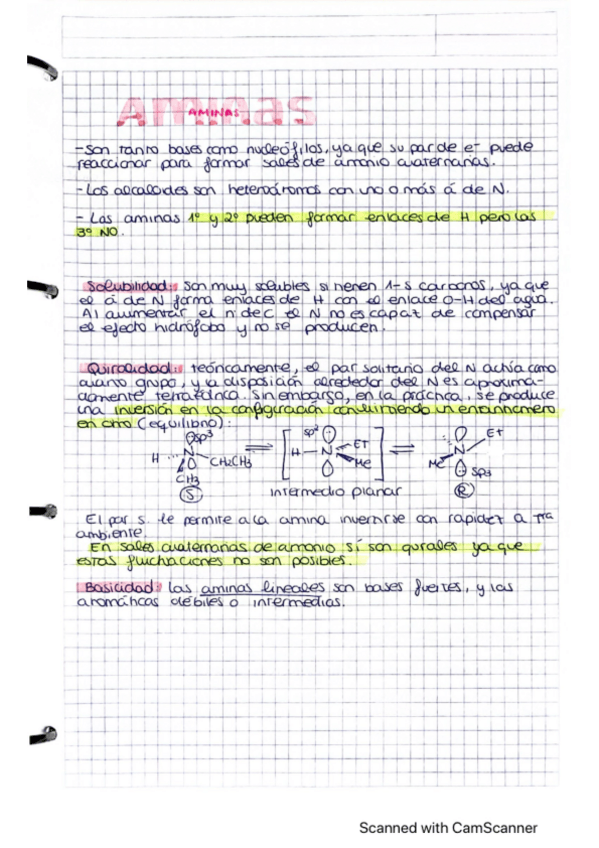 Aminas
AMINAS
-Son tanto bases como nucleófilos, ya que su par de e- puede
reaccionar para formar sales de amonio cuaternarias.
-Los alcaloides son heteroáromos con uno o más á de N.
- Las aminas 1º y 2º pueden formar enlaces de H pero las
3º NO.
Solubilidad: son muy solubles si tienen 1-5 carbonos, ya que
el á de N forma enlaces de H con el enlace O-H del agua.
Al aumentar el nº de C el N no es capaz de compensar
el efecto hidrófobo y no se producen.
Quiralidad: teóricamente, el par solitario del N actúa como
cuarto grupo, y la disposición alrededor del N es aproxima-
damente tetraédrica. Sin embargo, en la práctica, se produce
una inversión en la configuración convirtiendo un enantiómero
en otro (equilibrio):
sp3 sp2 ET Et
H N CH2CH3 H-N Me Me N sp3
CH3
S intermedio planar R
El par s. le permite a la amina invertirse con rapidez a Tra
ambiente.
En sales cuaternarias de amonio sí son quirales ya que
estas fluctuaciones no son posibles.
Basicidad: las aminas lineales son bases fuertes, y las
aromáticas débiles o intermedias.
Scanned with CamScanner